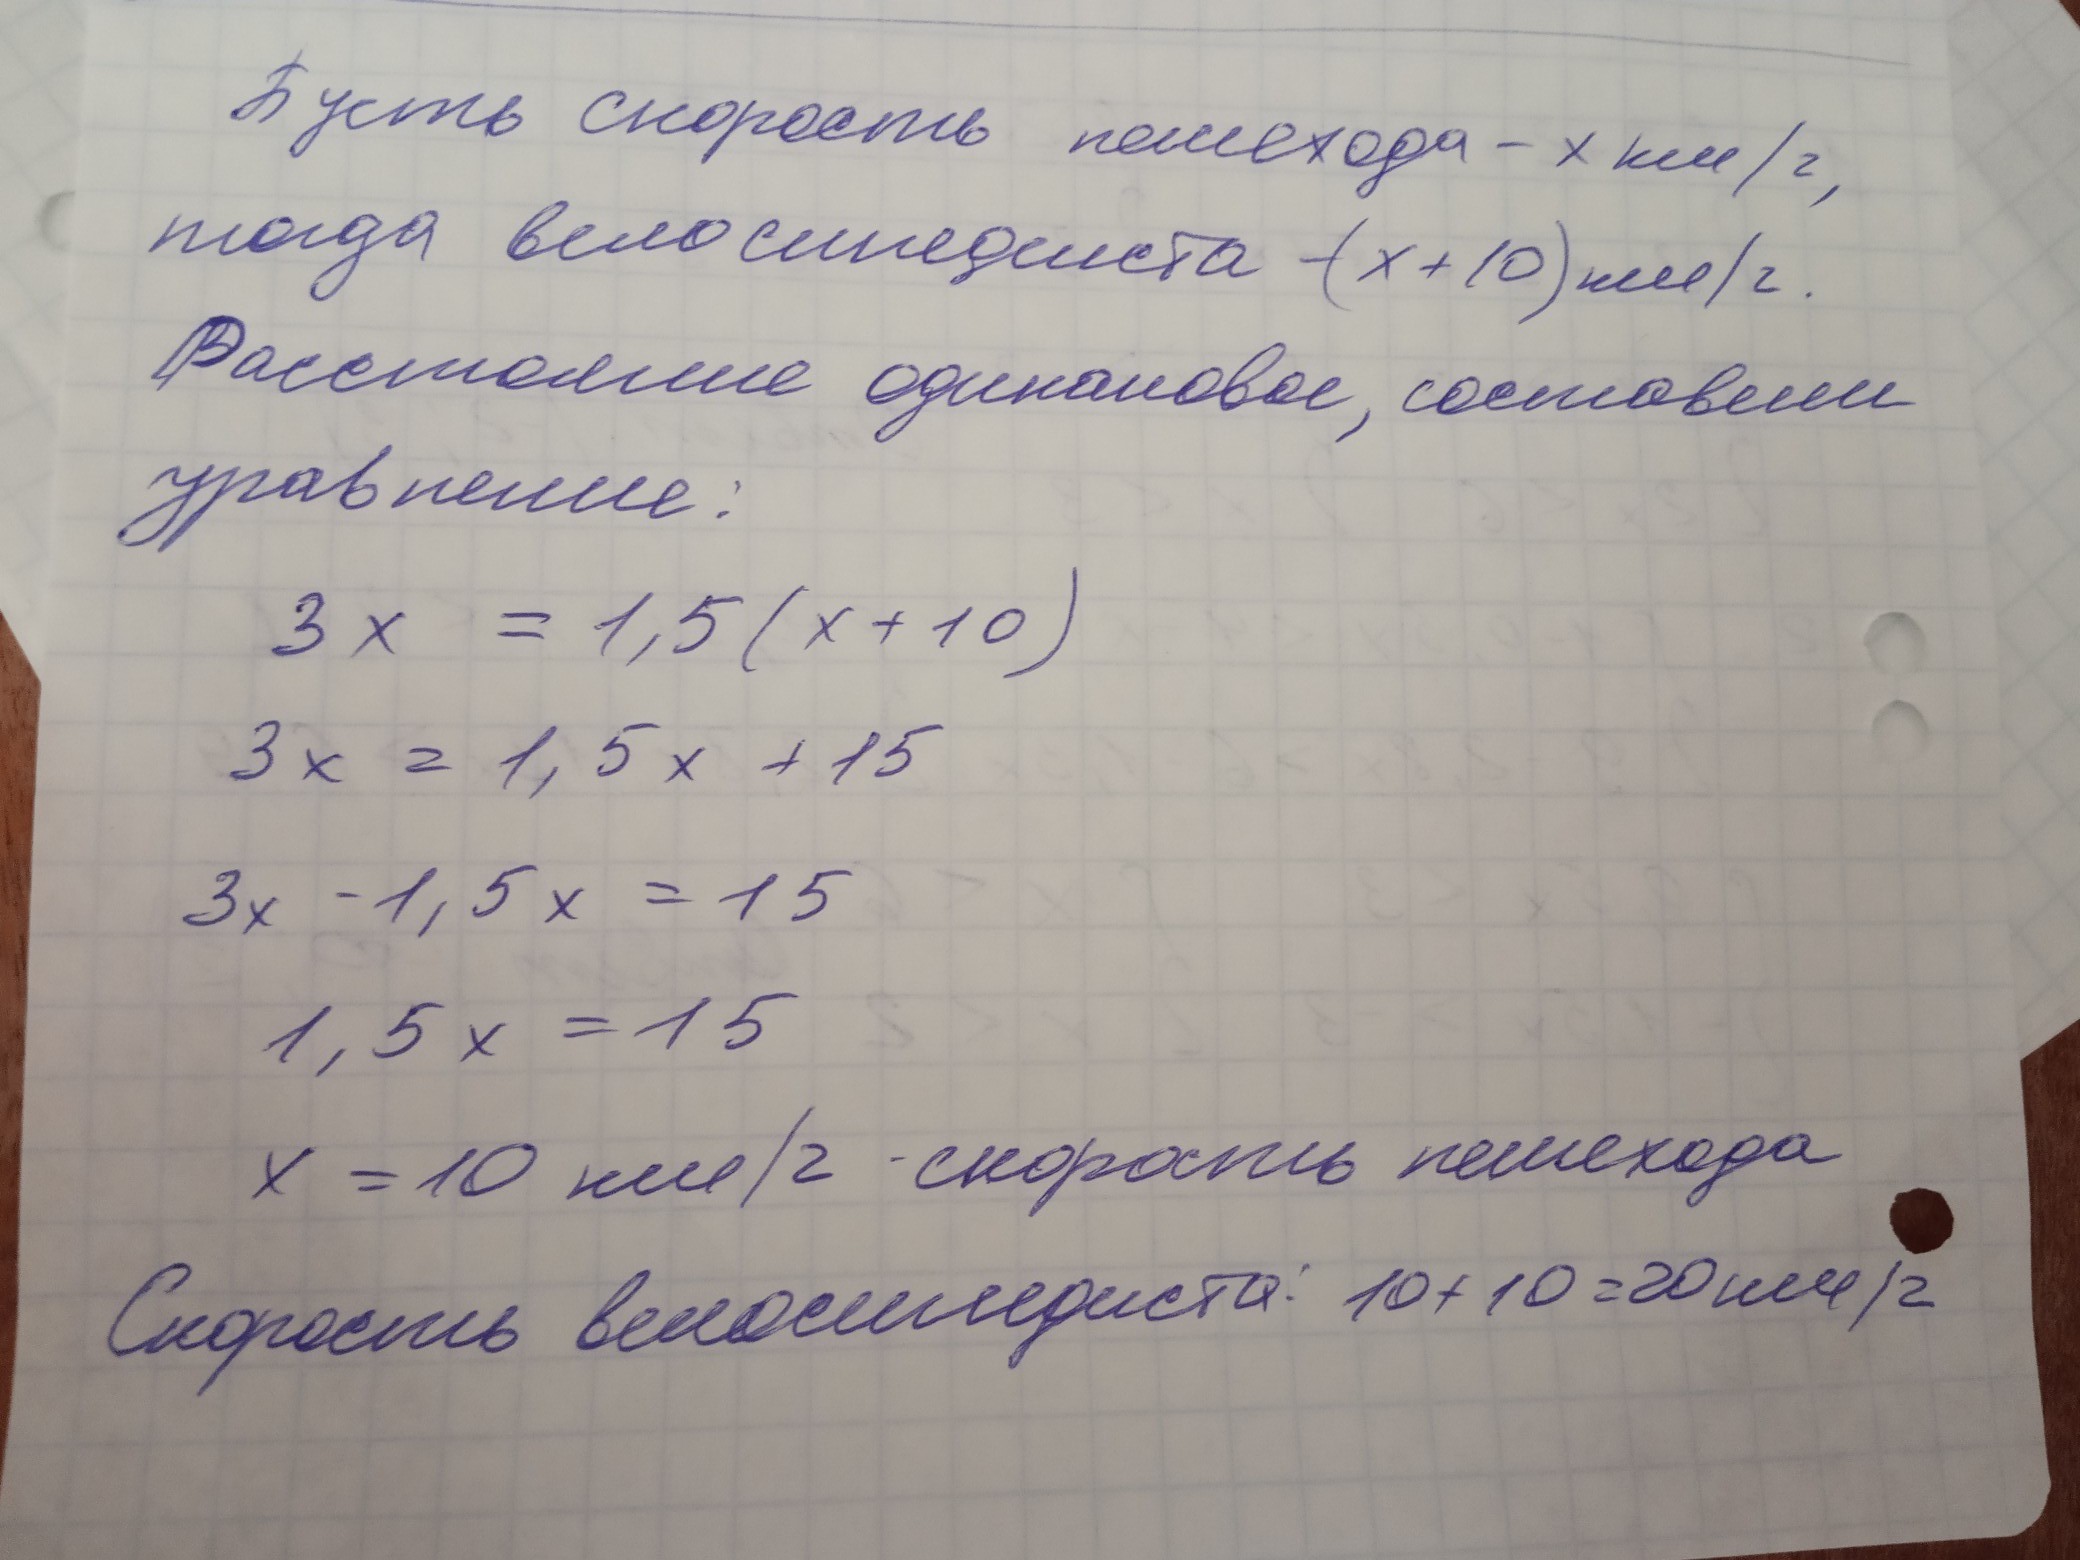 Пусть скорость пешехода - х км/ч,
тогда велосипедиста - (х+10) км/ч.
Расстояние одинаковое, составим
уравнение:
3х = 1,5(х+10)
3х = 1,5х +15
3х -1,5х = 15
1,5х = 15
х = 10 км/ч - скорость пешехода
Скорость велосипедиста: 10+10=20 км/ч